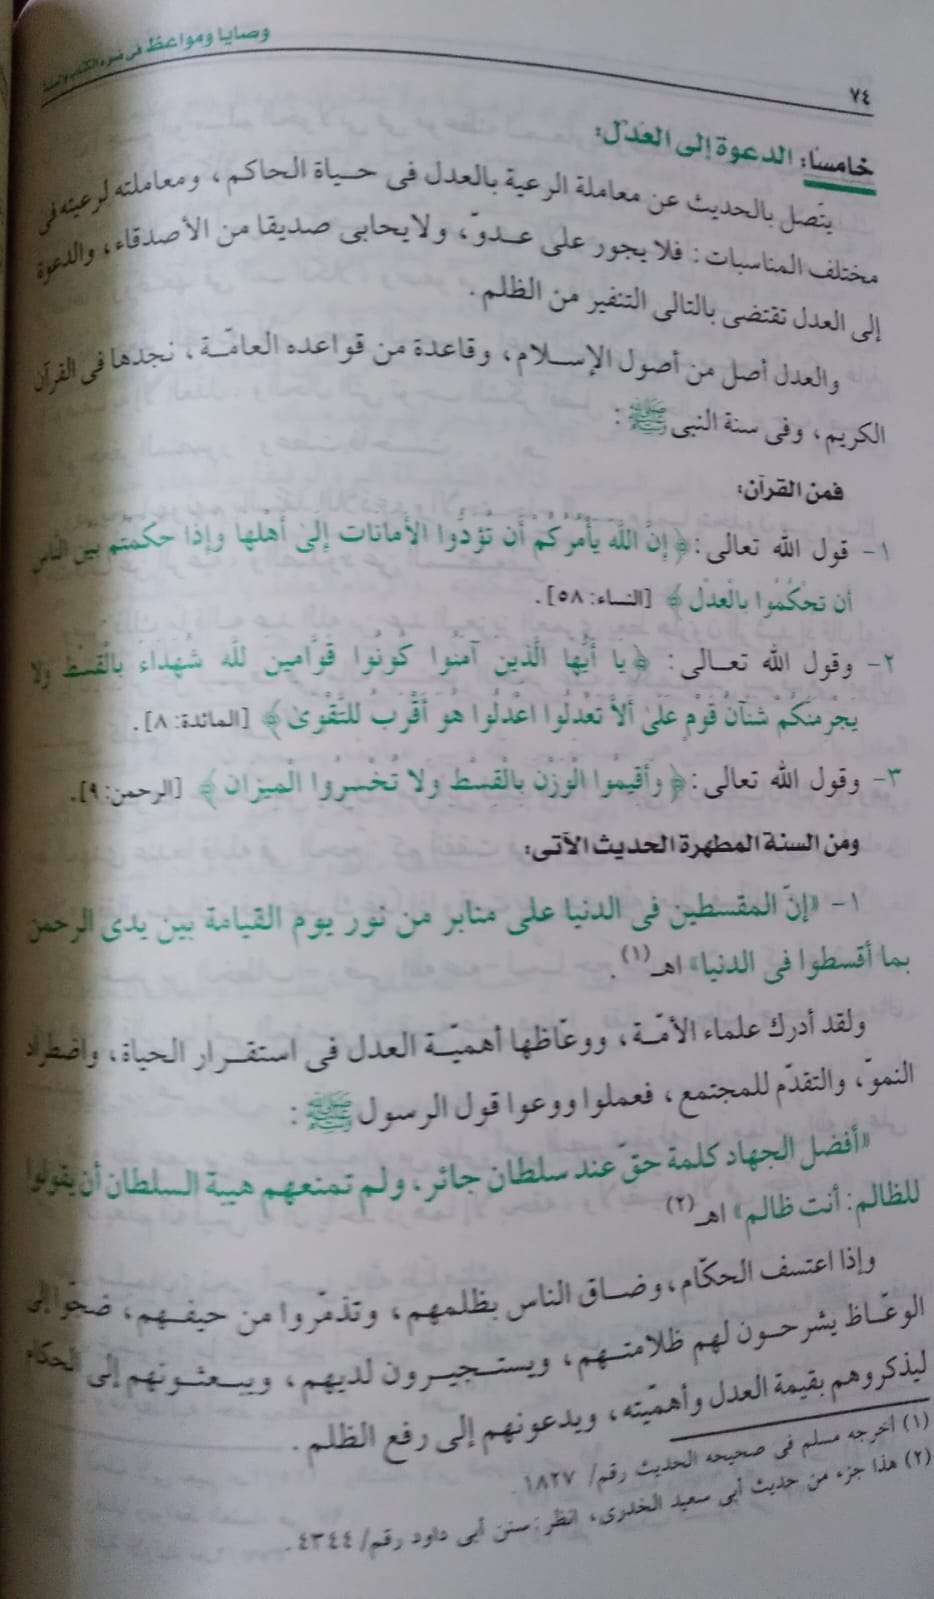 وصايا ومواعظ فى ضوء الكتاب والسنة
٧٤
خامسًا: الدعوة إلى العَدْل:
يتّصل بالحديث عن معاملة الرعية بالعدل فى حياة الحاكم، ومعاملته لرعيته فى
مختلف المناسبات: فلا يجور على عدوّ، ولا يحابى صديقا من الأصدقاء، والدعوة
إلى العدل تقتضى بالتالى التنفير من الظلم.
والعدل أصل من أصول الإسلام، وقاعدة من قواعده العامّة، نجدها فى القرآن
الكريم، وفى سنة النبى ﷺ:
فمن القرآن:
١- قول الله تعالى: ﴿إِنَّ اللَّهَ يَأْمُرُكُمْ أَن تُؤَدُّوا الأَمَانَاتِ إِلَىٰ أَهْلِهَا وَإِذَا حَكَمْتُم بَيْنَ النَّاسِ
أَن تَحْكُمُوا بِالْعَدْلِ﴾ [النساء: ٥٨].
٢- وقول الله تعالى: ﴿يَا أَيُّهَا الَّذِينَ آمَنُوا كُونُوا قَوَّامِينَ لِلَّهِ شُهَدَاءَ بِالْقِسْطِ وَلا
يَجْرِمَنَّكُمْ شَنَآنُ قَوْمٍ عَلَىٰ أَلاَّ تَعْدِلُوا اعْدِلُوا هُوَ أَقْرَبُ لِلتَّقْوَىٰ﴾ [المائدة: ٨].
٣- وقول الله تعالى: ﴿وَأَقِيمُوا الْوَزْنَ بِالْقِسْطِ وَلا تُخْسِرُوا الْمِيزَانَ﴾ [الرحمن: ٩].
ومن السنة المطهرة الحديث الآتى:
١- «إنّ المقسطين فى الدنيا على منابر من نور يوم القيامة بين يدى الرحمن
بما أقسطوا فى الدنيا» اهـ(١).
ولقد أدرك علماء الأمّة، ووعّاظها أهميّة العدل فى استقرار الحياة، واضطراد
النموّ، والتقدّم للمجتمع، فعملوا ووعوا قول الرسول ﷺ:
«أفضل الجهاد كلمة حقّ عند سلطان جائر، ولم تمنعهم هيبة السلطان أن يقولوا
للظالم: أنت ظالم» اهـ(٢)
وإذا اعتسف الحكّام، وضاق الناس بظلمهم، وتذمّروا من حيفهم، ضجّوا إلى
الوعّاظ يشرحون لهم ظلامتهم، ويستجيرون لديهم، ويبعثونهم إلى الحكام
ليذكروهم بقيمة العدل وأهمّيته، ويدعونهم إلى رفع الظلم.
(١) أخرجه مسلم فى صحيحه الحديث رقم/ ١٨٢٧.
(٢) هذا جزء من حديث أبى سعيد الخدرى، انظر: سنن أبى داود رقم/ ٤٣٤٤.